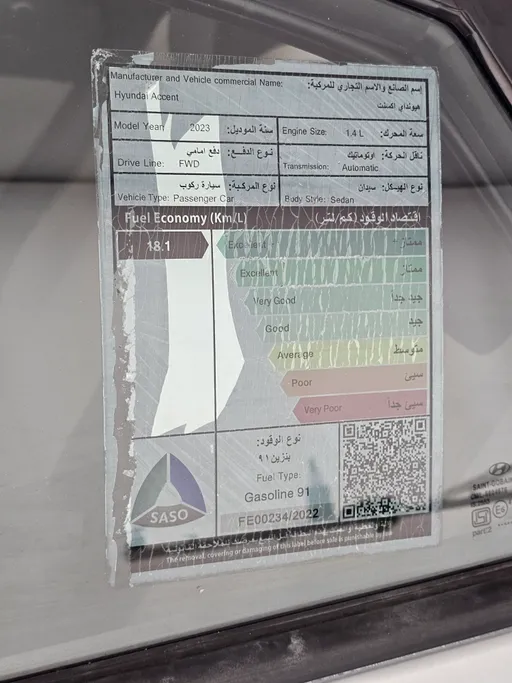 Manufacturer and Vehicle commercial Name: إسم الصانع والاسم التجاري للمركبة:
Hyundai Accent هيونداي اكسنت
Model Year: 2023 سنة الموديل: Engine Size: 1.4 L سعة المحرك:
نوع الدفع: دفع امامي ناقل الحركة: اوتوماتيك
Drive Line: FWD Transmission: Automatic
نوع المركبة: سيارة ركوب نوع الهيكل: سيدان
Vehicle Type: Passenger Car Body Style: Sedan
Fuel Economy (Km/L) اقتصاد الوقود (كم/لتر)
18.1 Excellent + ممتاز+
Excellent ممتاز
Very Good جيد جداً
Good جيد
Average متوسط
Poor سيئ
Very Poor سيئ جداً
نوع الوقود:
بنزين ٩١
Fuel Type:
Gasoline 91
FE00234/2022
SASO
The removal, covering or damaging of this label before sale is punishable
SAINT-GOBAIN